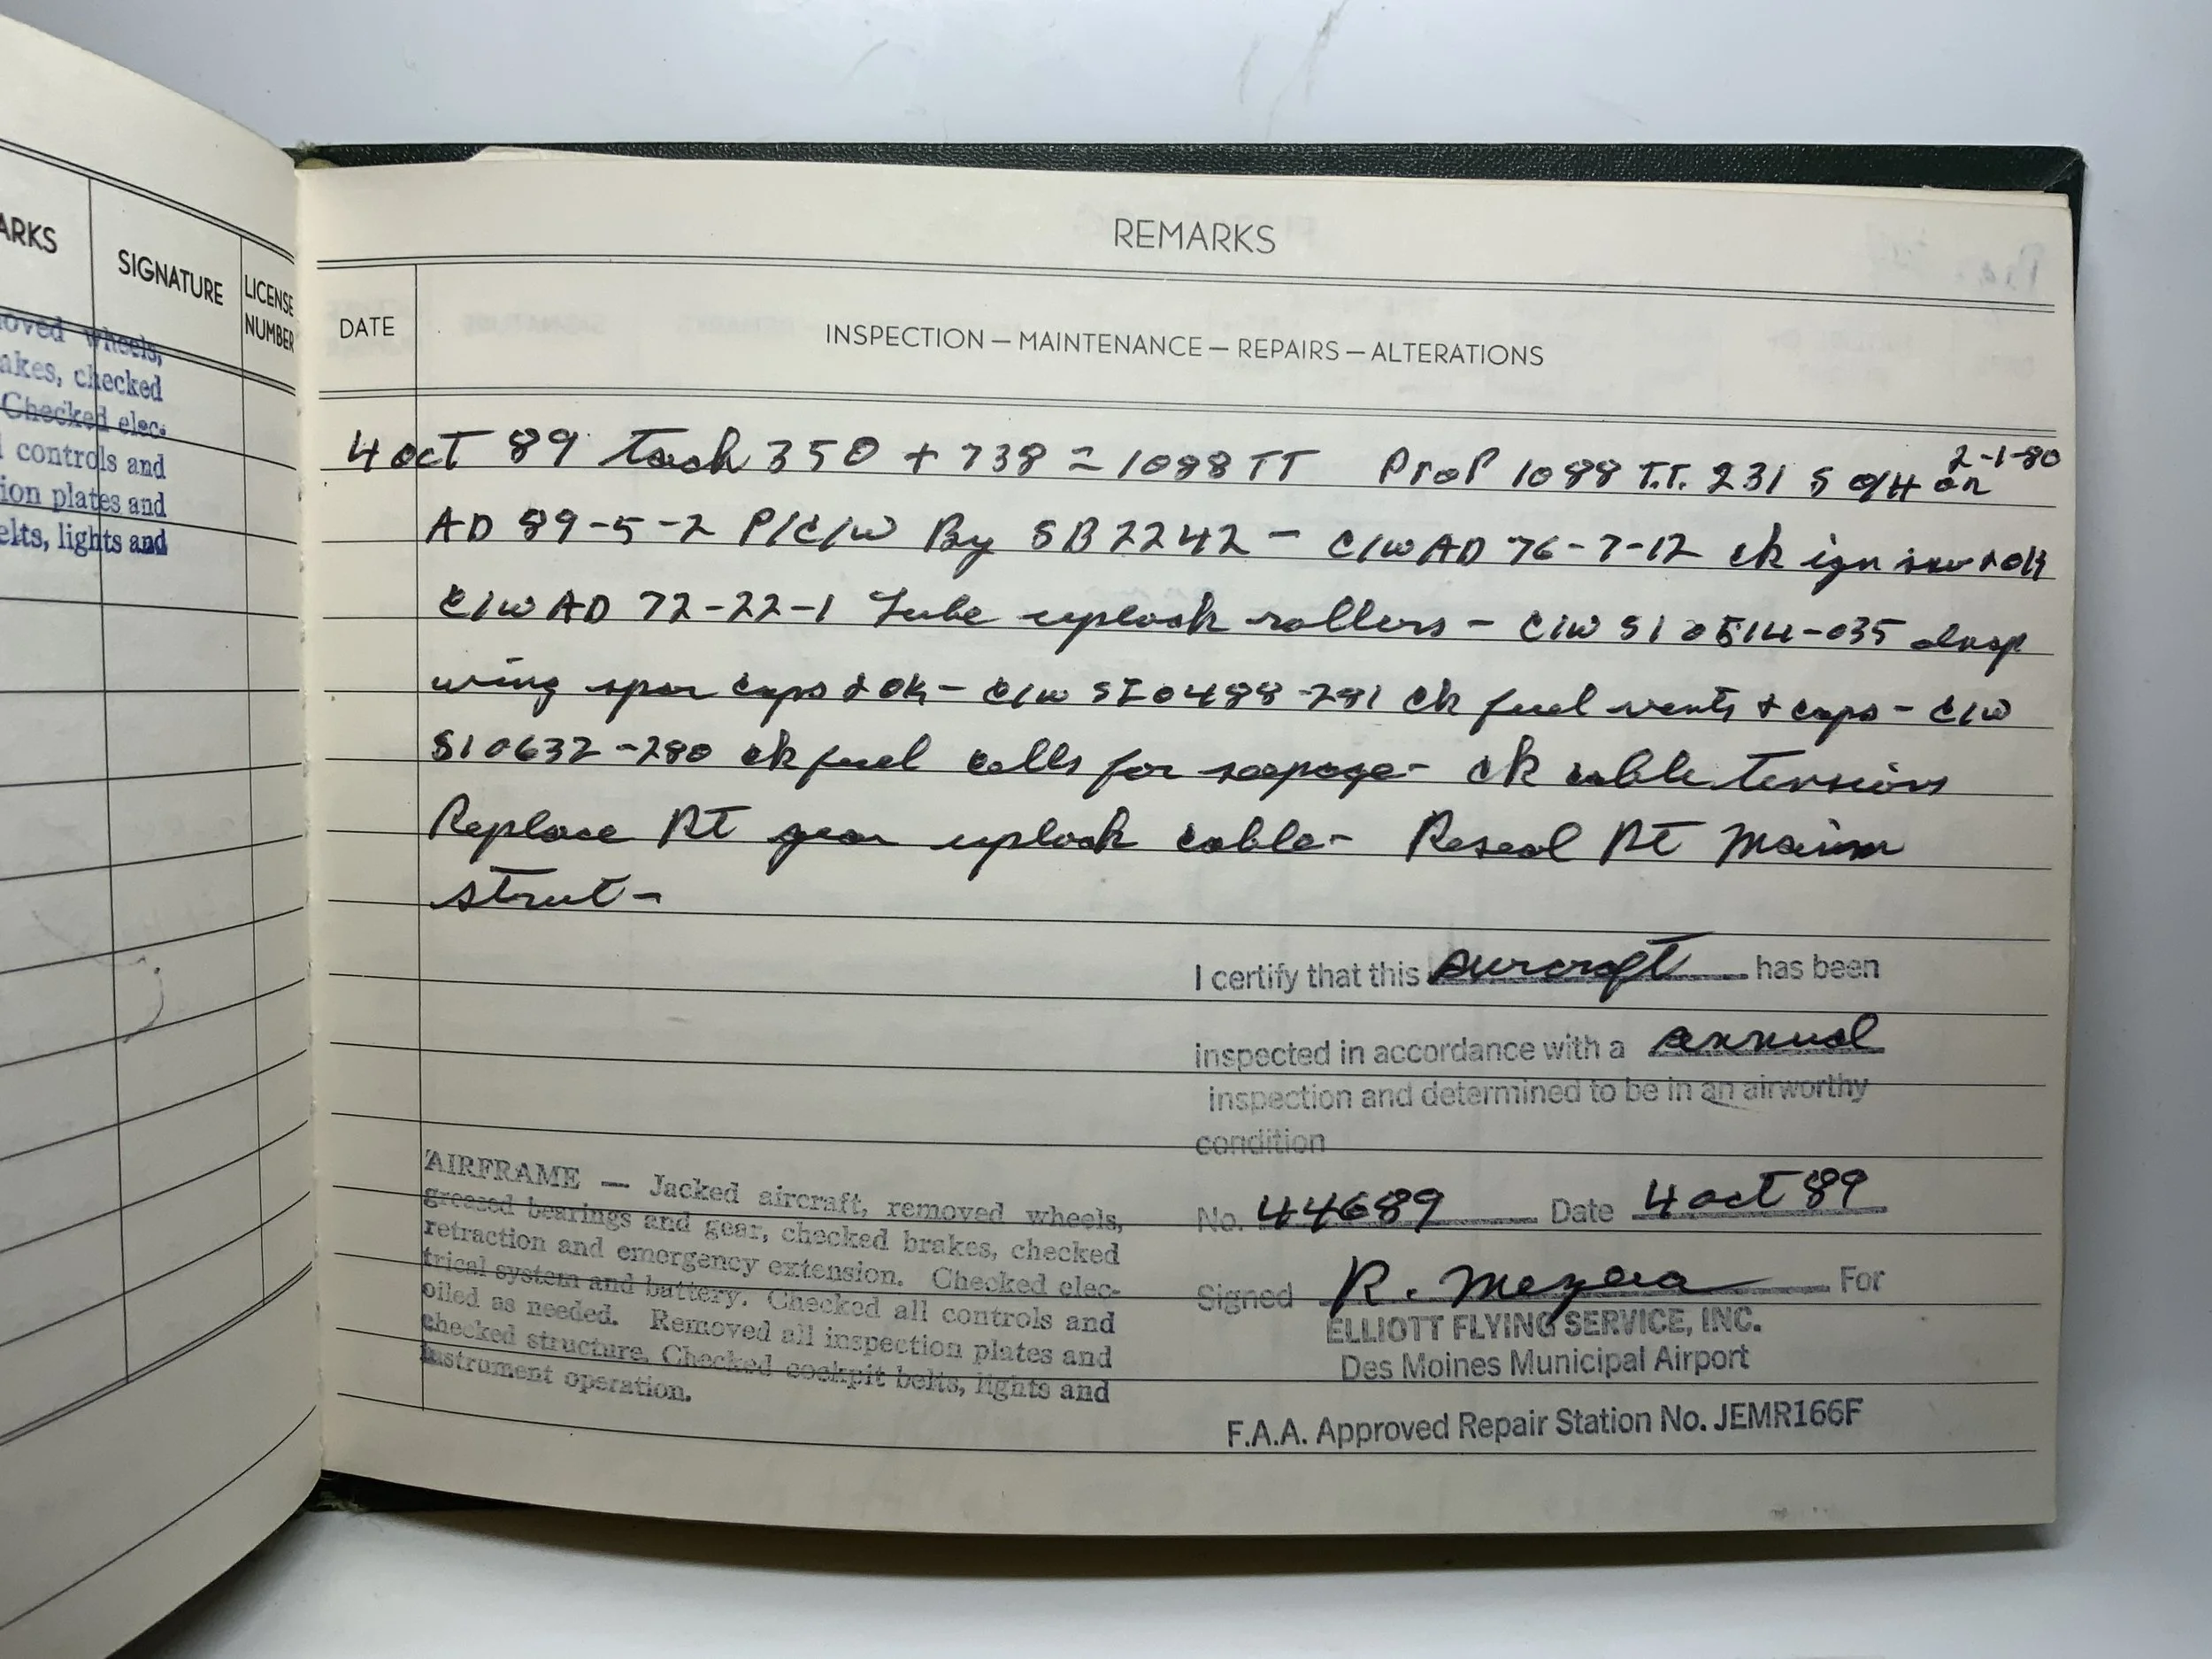 ARKS
SIGNATURE
LICENSE
NUMBER
oved wheels,
akes, checked
Checked elec-
l controls and
ion plates and
elts, lights and
REMARKS
DATE
INSPECTION — MAINTENANCE — REPAIRS — ALTERATIONS
4 oct 89 Tach 350 + 738 = 1088 TT Prop 1088 T.T. 231 S O/H on 2-1-80
AD 89-5-2 P/C/W By SB 2242 - C/W AD 76-7-12 ck ign sw + OK
C/W AD 72-22-1 Lube uplock rollers - C/W SI 0514-035 Insp
wing spar caps + OK - C/W SI 0488-281 ck fuel vents + caps - C/W
SI 0632-280 ck fuel cells for seepage - ck cable tensions
Replace RT gear uplock cable - Reseal RT Main
strut -
I certify that this aircraft has been
inspected in accordance with a annual
inspection and determined to be in an airworthy
condition
No. 44689 Date 4 oct 89
Signed R. For
ELLIOTT FLYING SERVICE, INC.
Des Moines Municipal Airport
F.A.A. Approved Repair Station No. JEMR166F
AIRFRAME — Jacked aircraft, removed wheels,
greased bearings and gear, checked brakes, checked
retraction and emergency extension. Checked elec-
trical system and battery. Checked all controls and
oiled as needed. Removed all inspection plates and
checked structure. Checked cockpit belts, lights and
instrument operation.